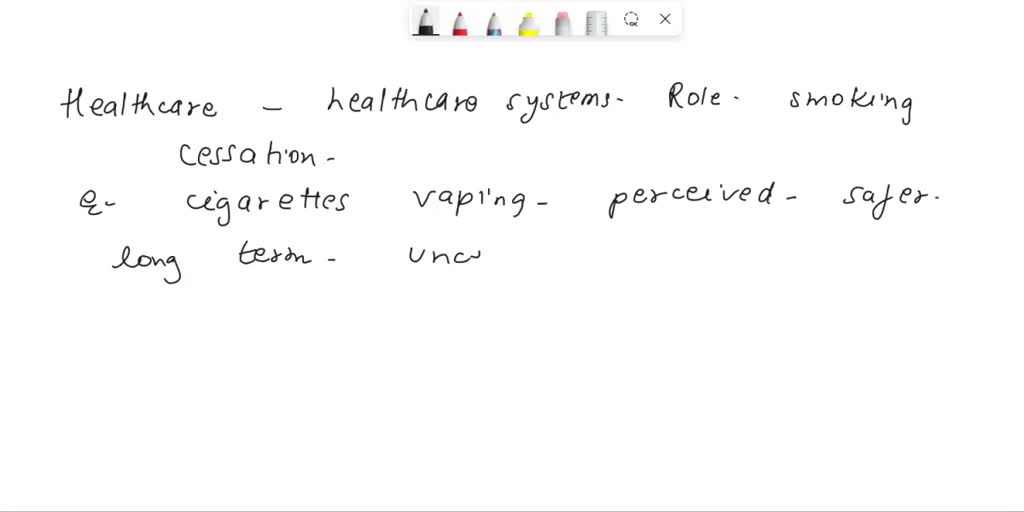 Healthcare - healthcare systems. Role. smoking
cessation -
E- cigarettes vaping - perceived - safer.
long term - unc